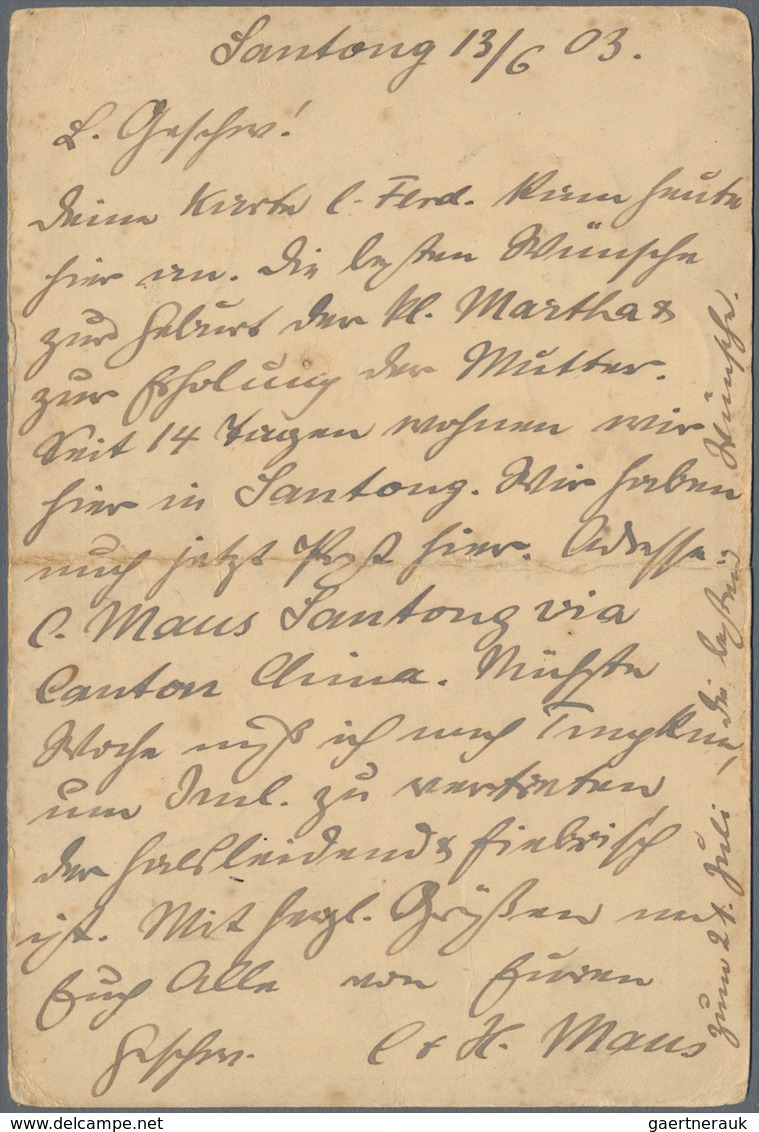 Santong 13/6 03.
L. Geschw!
Deine Karte l. Ferd. kam heute
hier an. Die besten Wünsche
zur Geburt der kl. Martha &
zur Erholung der Mutter.
Seit 14 Tagen wohnen wir
hier in Santong. Wir haben
auch jetzt Post hier. Adresse:
C. Maus Santong via
Canton China. Nächste
Woche muß ich nach
um zu vertreten
der halsleidend & fiebrisch
ist. Mit herzl. Grüßen an
Euch Alle von Euren
Geschw. C & H. Maus
zum 21. Juli die besten Wünsche.
gaertnerauk